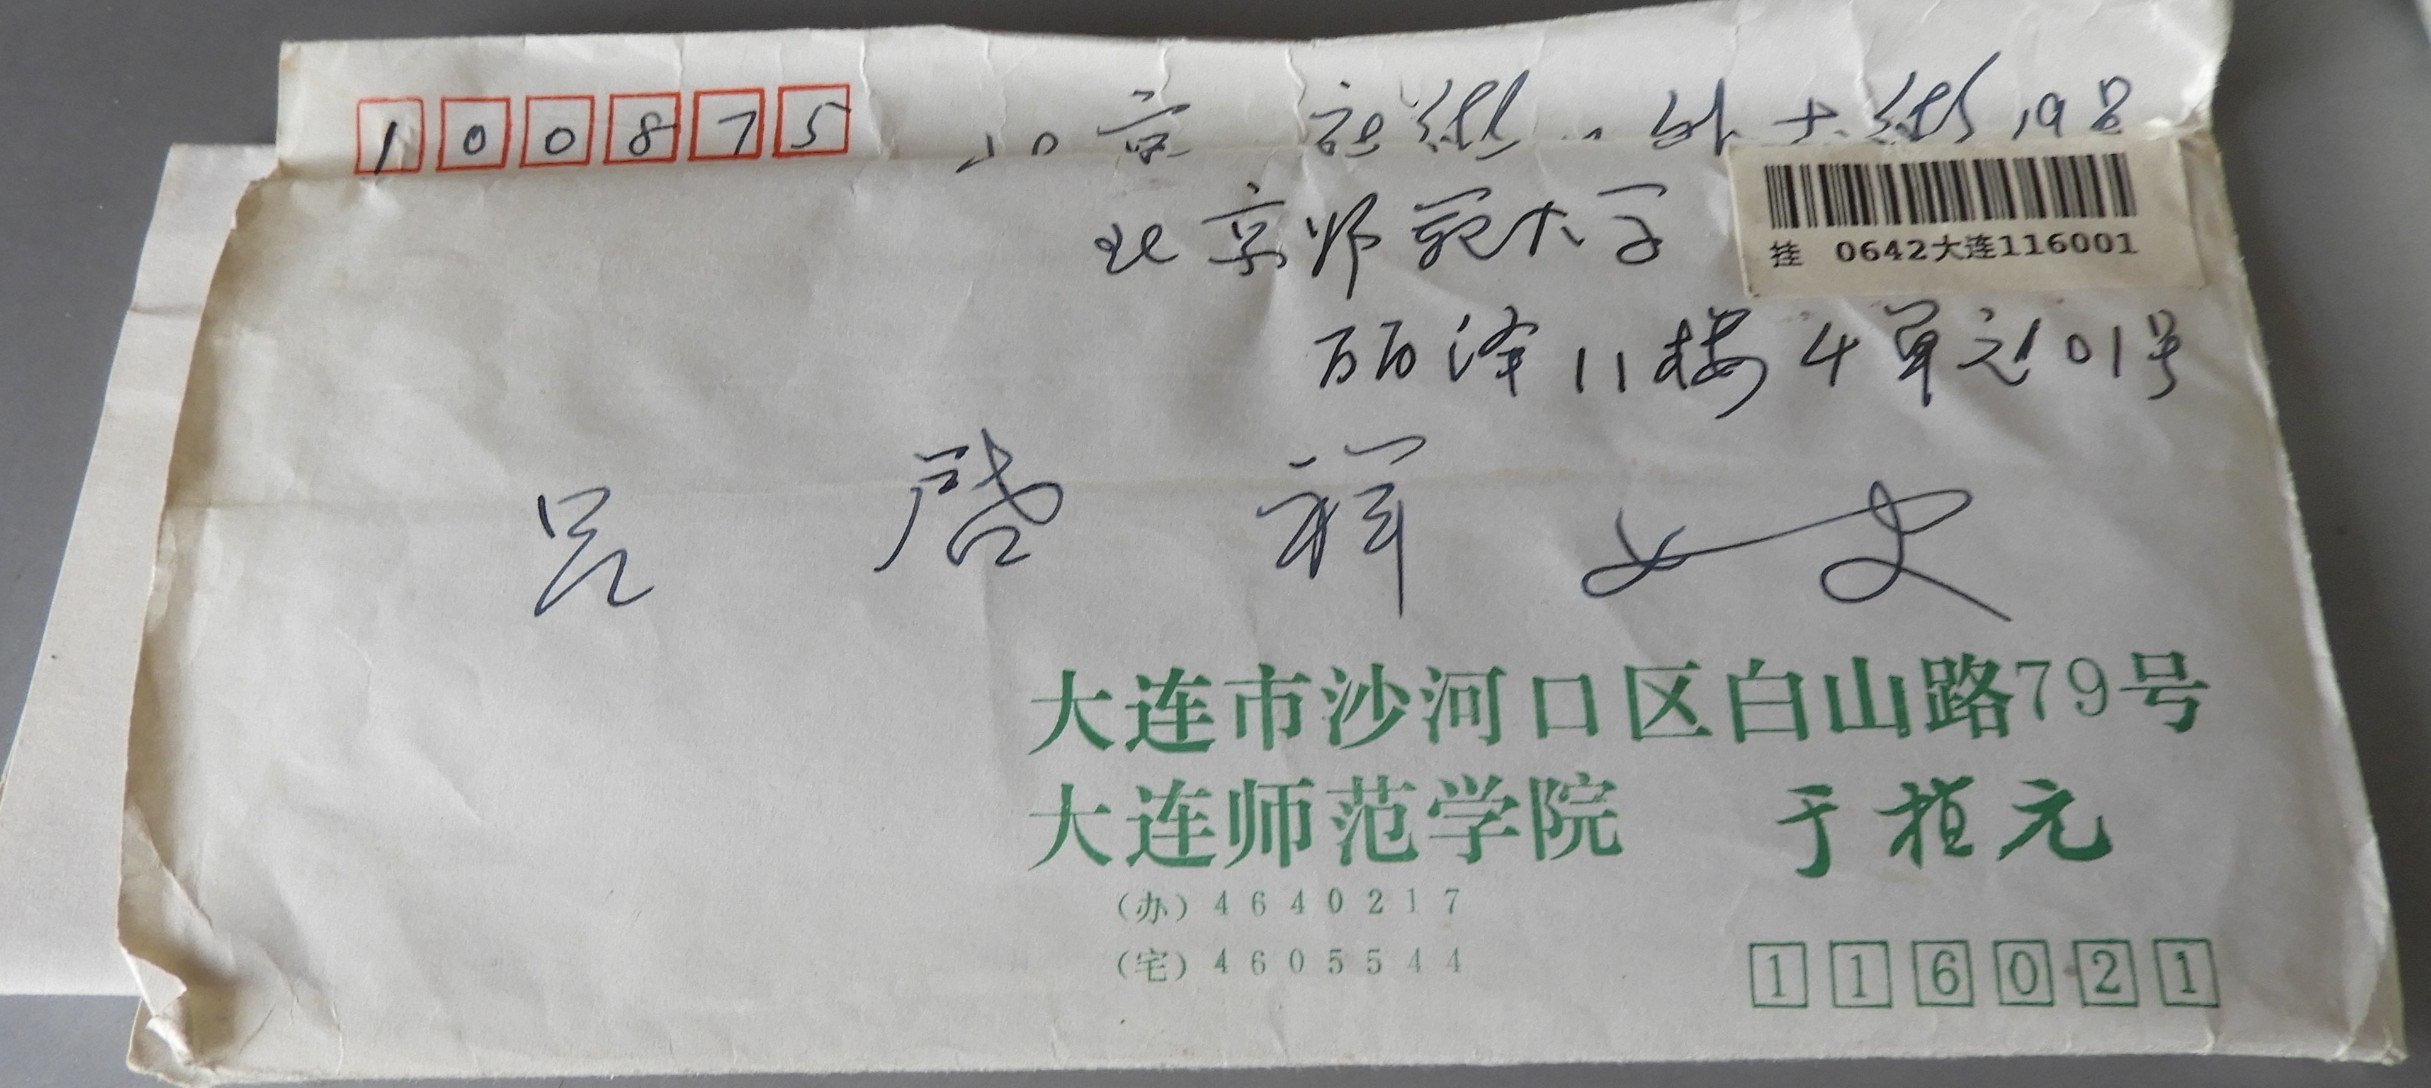 100875 北京 新街口外大街19号
北京师范大学
挂 0642大连116001
丽泽11楼4单元101号
吕启祥女史
大连市沙河口区白山路79号
大连师范学院 于植元
(办) 4640217
(宅) 4605544
116021